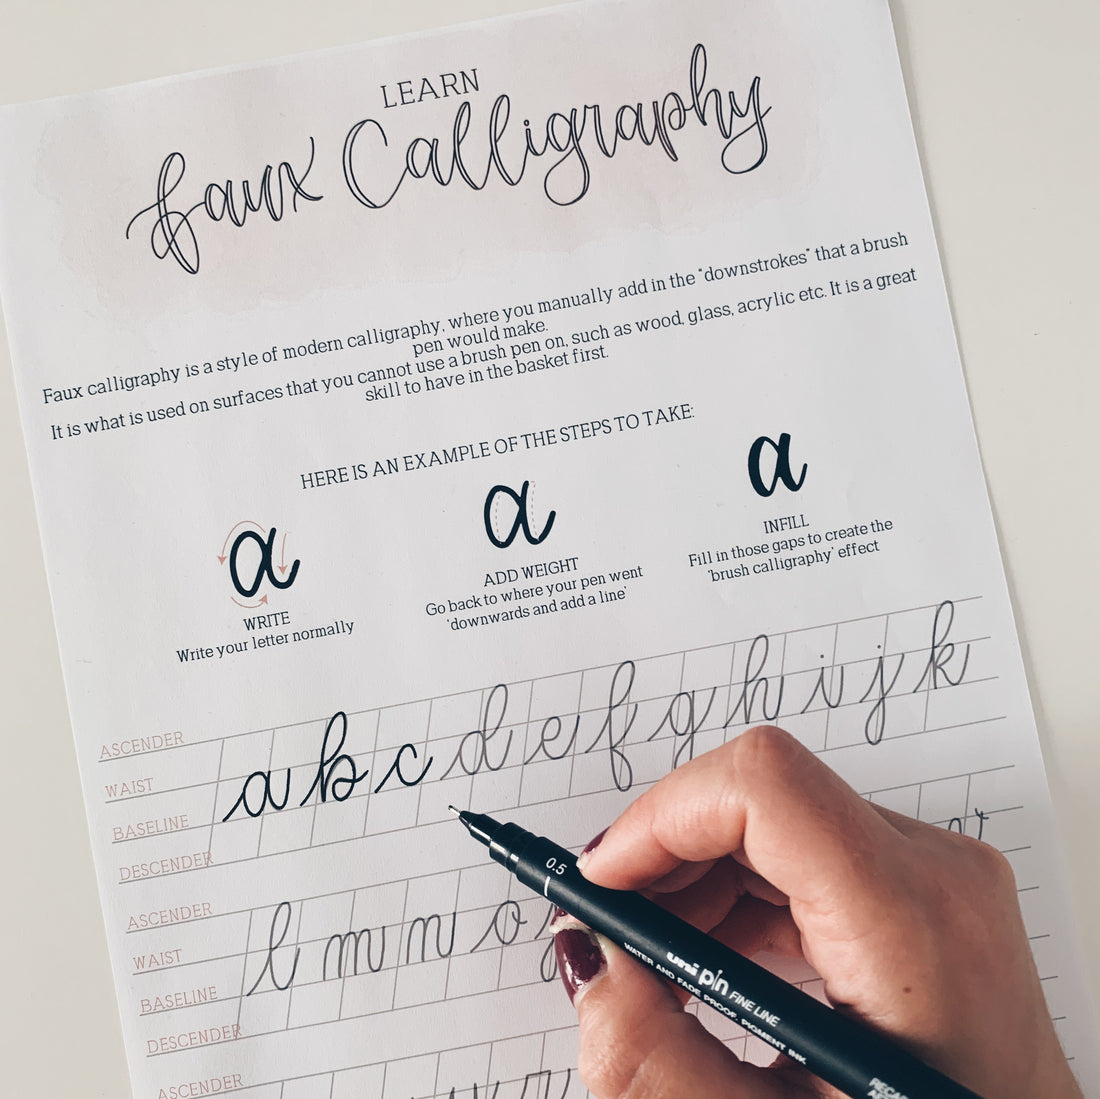 LEARN
faux Calligraphy
Faux calligraphy is a style of modern calligraphy, where you manually add in the "downstrokes" that a brush
pen would make.
It is what is used on surfaces that you cannot use a brush pen on, such as wood, glass, acrylic etc. It is a great
skill to have in the basket first.
HERE IS AN EXAMPLE OF THE STEPS TO TAKE:
a
a
a
WRITE
Write your letter normally
ADD WEIGHT
Go back to where your pen went
'downwards and add a line'
INFILL
Fill in those gaps to create the
'brush calligraphy' effect
ASCENDER
WAIST
BASELINE
DESCENDER
a b c d e f g h i j k
ASCENDER
WAIST
BASELINE
DESCENDER
l m n o
ASCENDER
0.5
uni pin FINE LINE
WATER AND FADE PROOF, PIGMENT INK